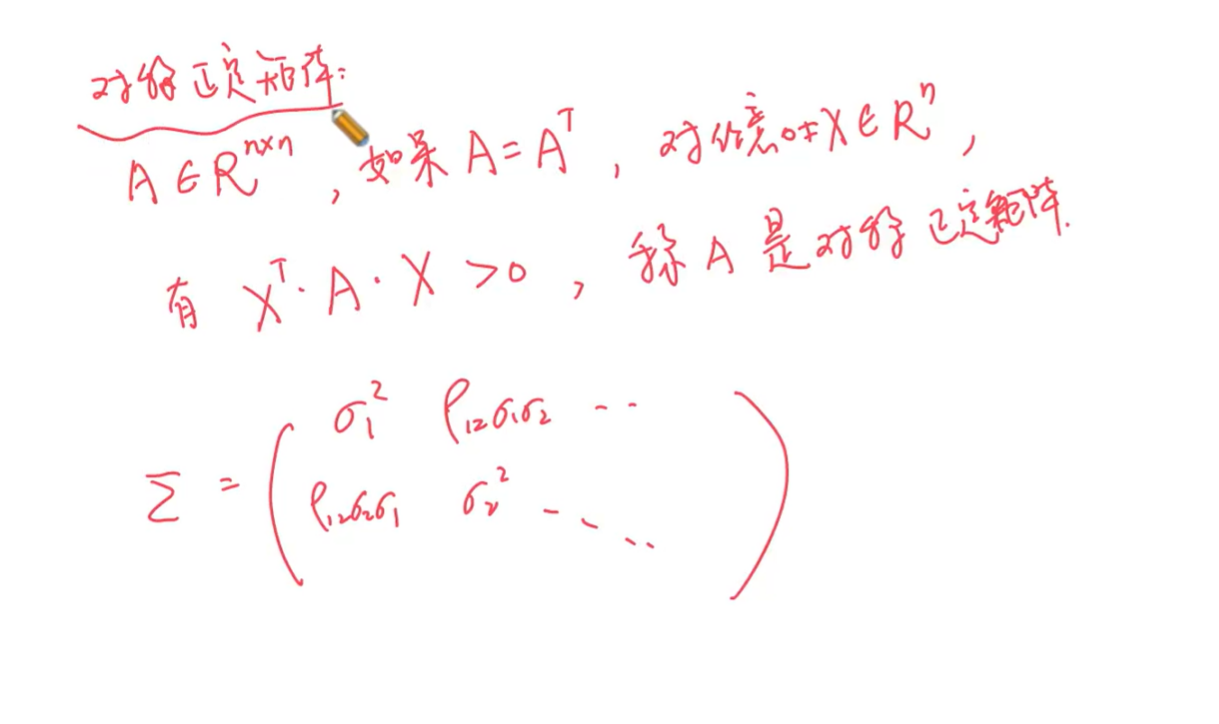 对称正定矩阵:
A ∈ R^{n×n}, 如果 A = A^T, 对任意 0≠X ∈ R^n,
有 X^T · A · X > 0, 称 A 是对称正定矩阵.
Σ = ( σ_1^2 ρ_{12}σ_1σ_2 ··
ρ_{12}σ_2σ_1 σ_2^2 ·· ·· )